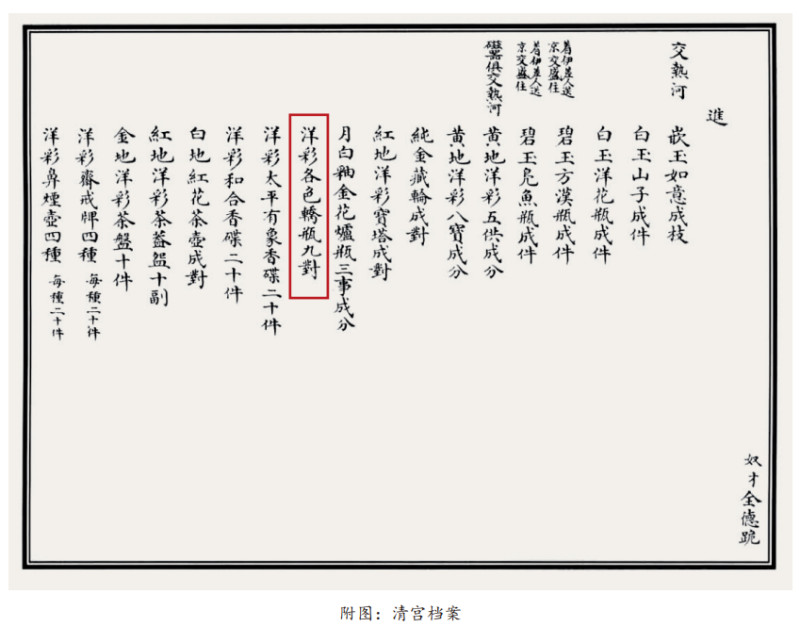 奴才全德跪
進
交熱河
嵌玉如意成枝
白玉山子成件
白玉洋花瓶成件
着伊差人送
京交盛住
碧玉方漢瓶成件
着伊差人送
京交盛住
碧玉凫魚瓶成件
磁器俱交熱河
黄地洋彩五供成分
黄地洋彩八寶成分
純金藏輪成對
紅地洋彩寶塔成對
月白釉金花爐瓶三事成分
洋彩各色轎瓶九對
洋彩太平有象香碟二十件
洋彩和合香碟二十件
白地紅花茶壺成對
紅地洋彩茶蓋盌十副
金地洋彩茶盤十件
洋彩齋戒牌四種 每種二十件
洋彩鼻煙壺四種 每種二十件
附图：清宫档案